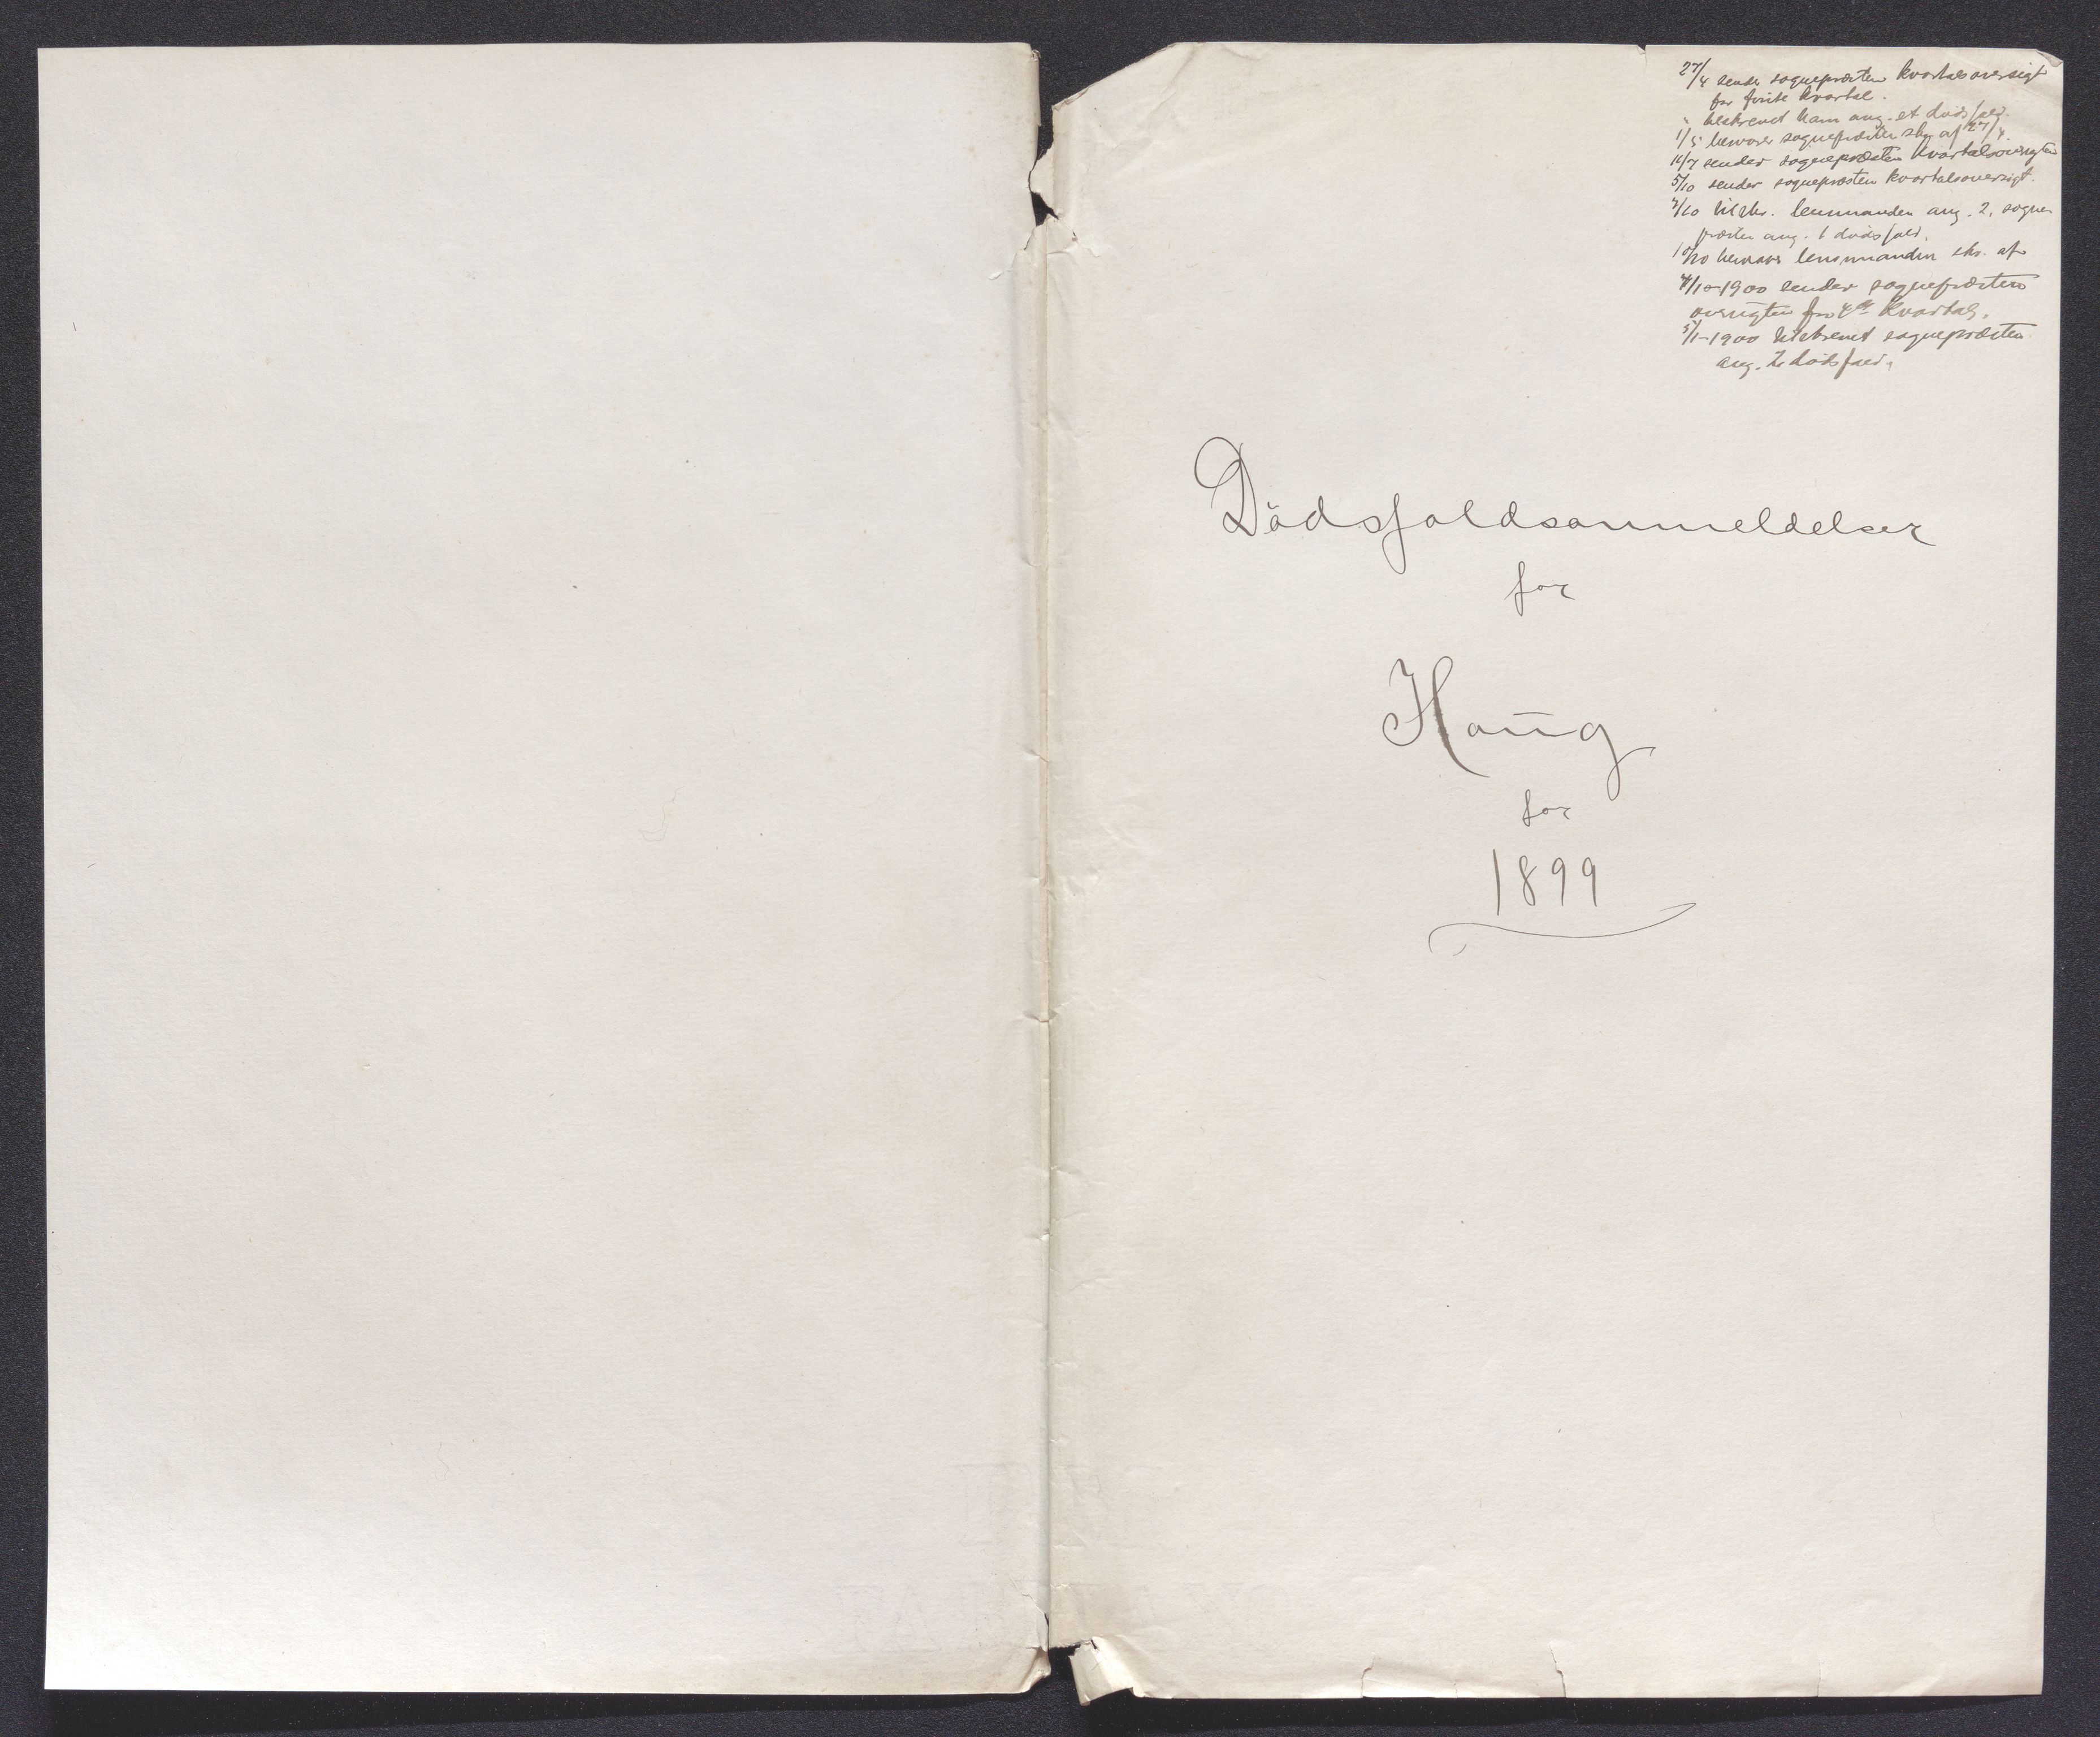 27/4 sender sognepræsten kvartalsoversigt
for første kvartal.
" tilskrevet ham ang. et dødsfald.
1/5 besvarer sognepræsten skr. af 27/4.
11/7 sender sognepræsten kvartalsoversigten
5/10 sender sognepræsten kvartalsoversigt.
7/10 tilskr. lensmanden ang. 2, sogne
præsten ang. 1 dødsfald.
/10 besvarer lensmanden skr. af
4/1-1900 sender sognepræsten
oversigten for 4de kvartal.
5/1-1900 tilskrevet sognepræsten
ang. dødsfald.
Dödsfaldsanmeldelser
for
Haug
for
1899